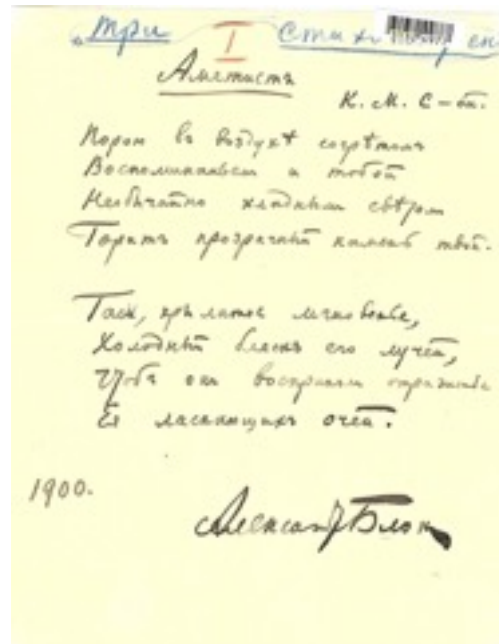 Три I Стих
Аметистъ
К. М. С-ой.
Порой въ воздухѣ согрѣтомъ
Воспоминаньем и тобой
Необычайно хладным свѣтом
Горитъ прозрачный камень твой.
Гаси, крылатое мгновенье,
Холодный блескъ его лучей,
Чтобъ он воспринял отраженье
Ея ласкающихъ очей.
1900.
Александр Блок